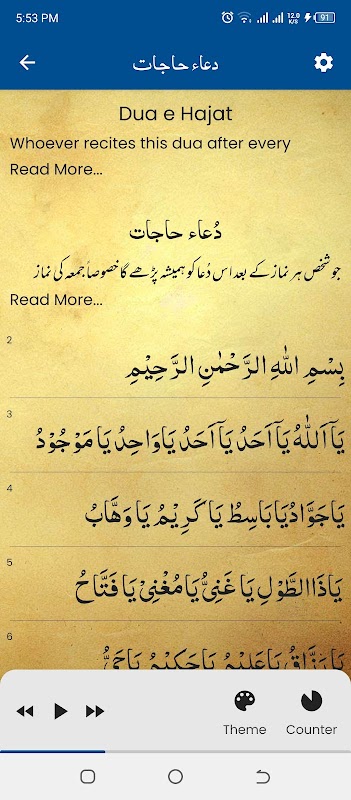 5:53 PM
12.9 K/S
91
دعاء حاجات
Dua e Hajat
Whoever recites this dua after every
Read More...
دُعاء حاجات
جو شخص ہر نماز کے بعد اس دُعا کو ہمیشہ پڑھے گا خصوصاً جمعہ کی نماز
Read More...
2
بِسْمِ اللّٰهِ الرَّحْمٰنِ الرَّحِيْمِ
3
يَآ اَللّٰهُ يَآ اَحَدُ يَآ اَحَدُ يَا وَاحِدُ يَا مَوْجُوْدُ
4
يَا جَوَّادُ يَا بَاسِطُ يَا كَرِيْمُ يَا وَهَّابُ
5
يَا ذَا الطَّوْلِ يَا غَنِيُّ يَا مُغْنِيْ يَا فَتَّاحُ
6
يَا رَزَّاقُ يَا عَلِيْمُ يَا حَكِيْمُ يَا حَيُّ
Theme
Counter